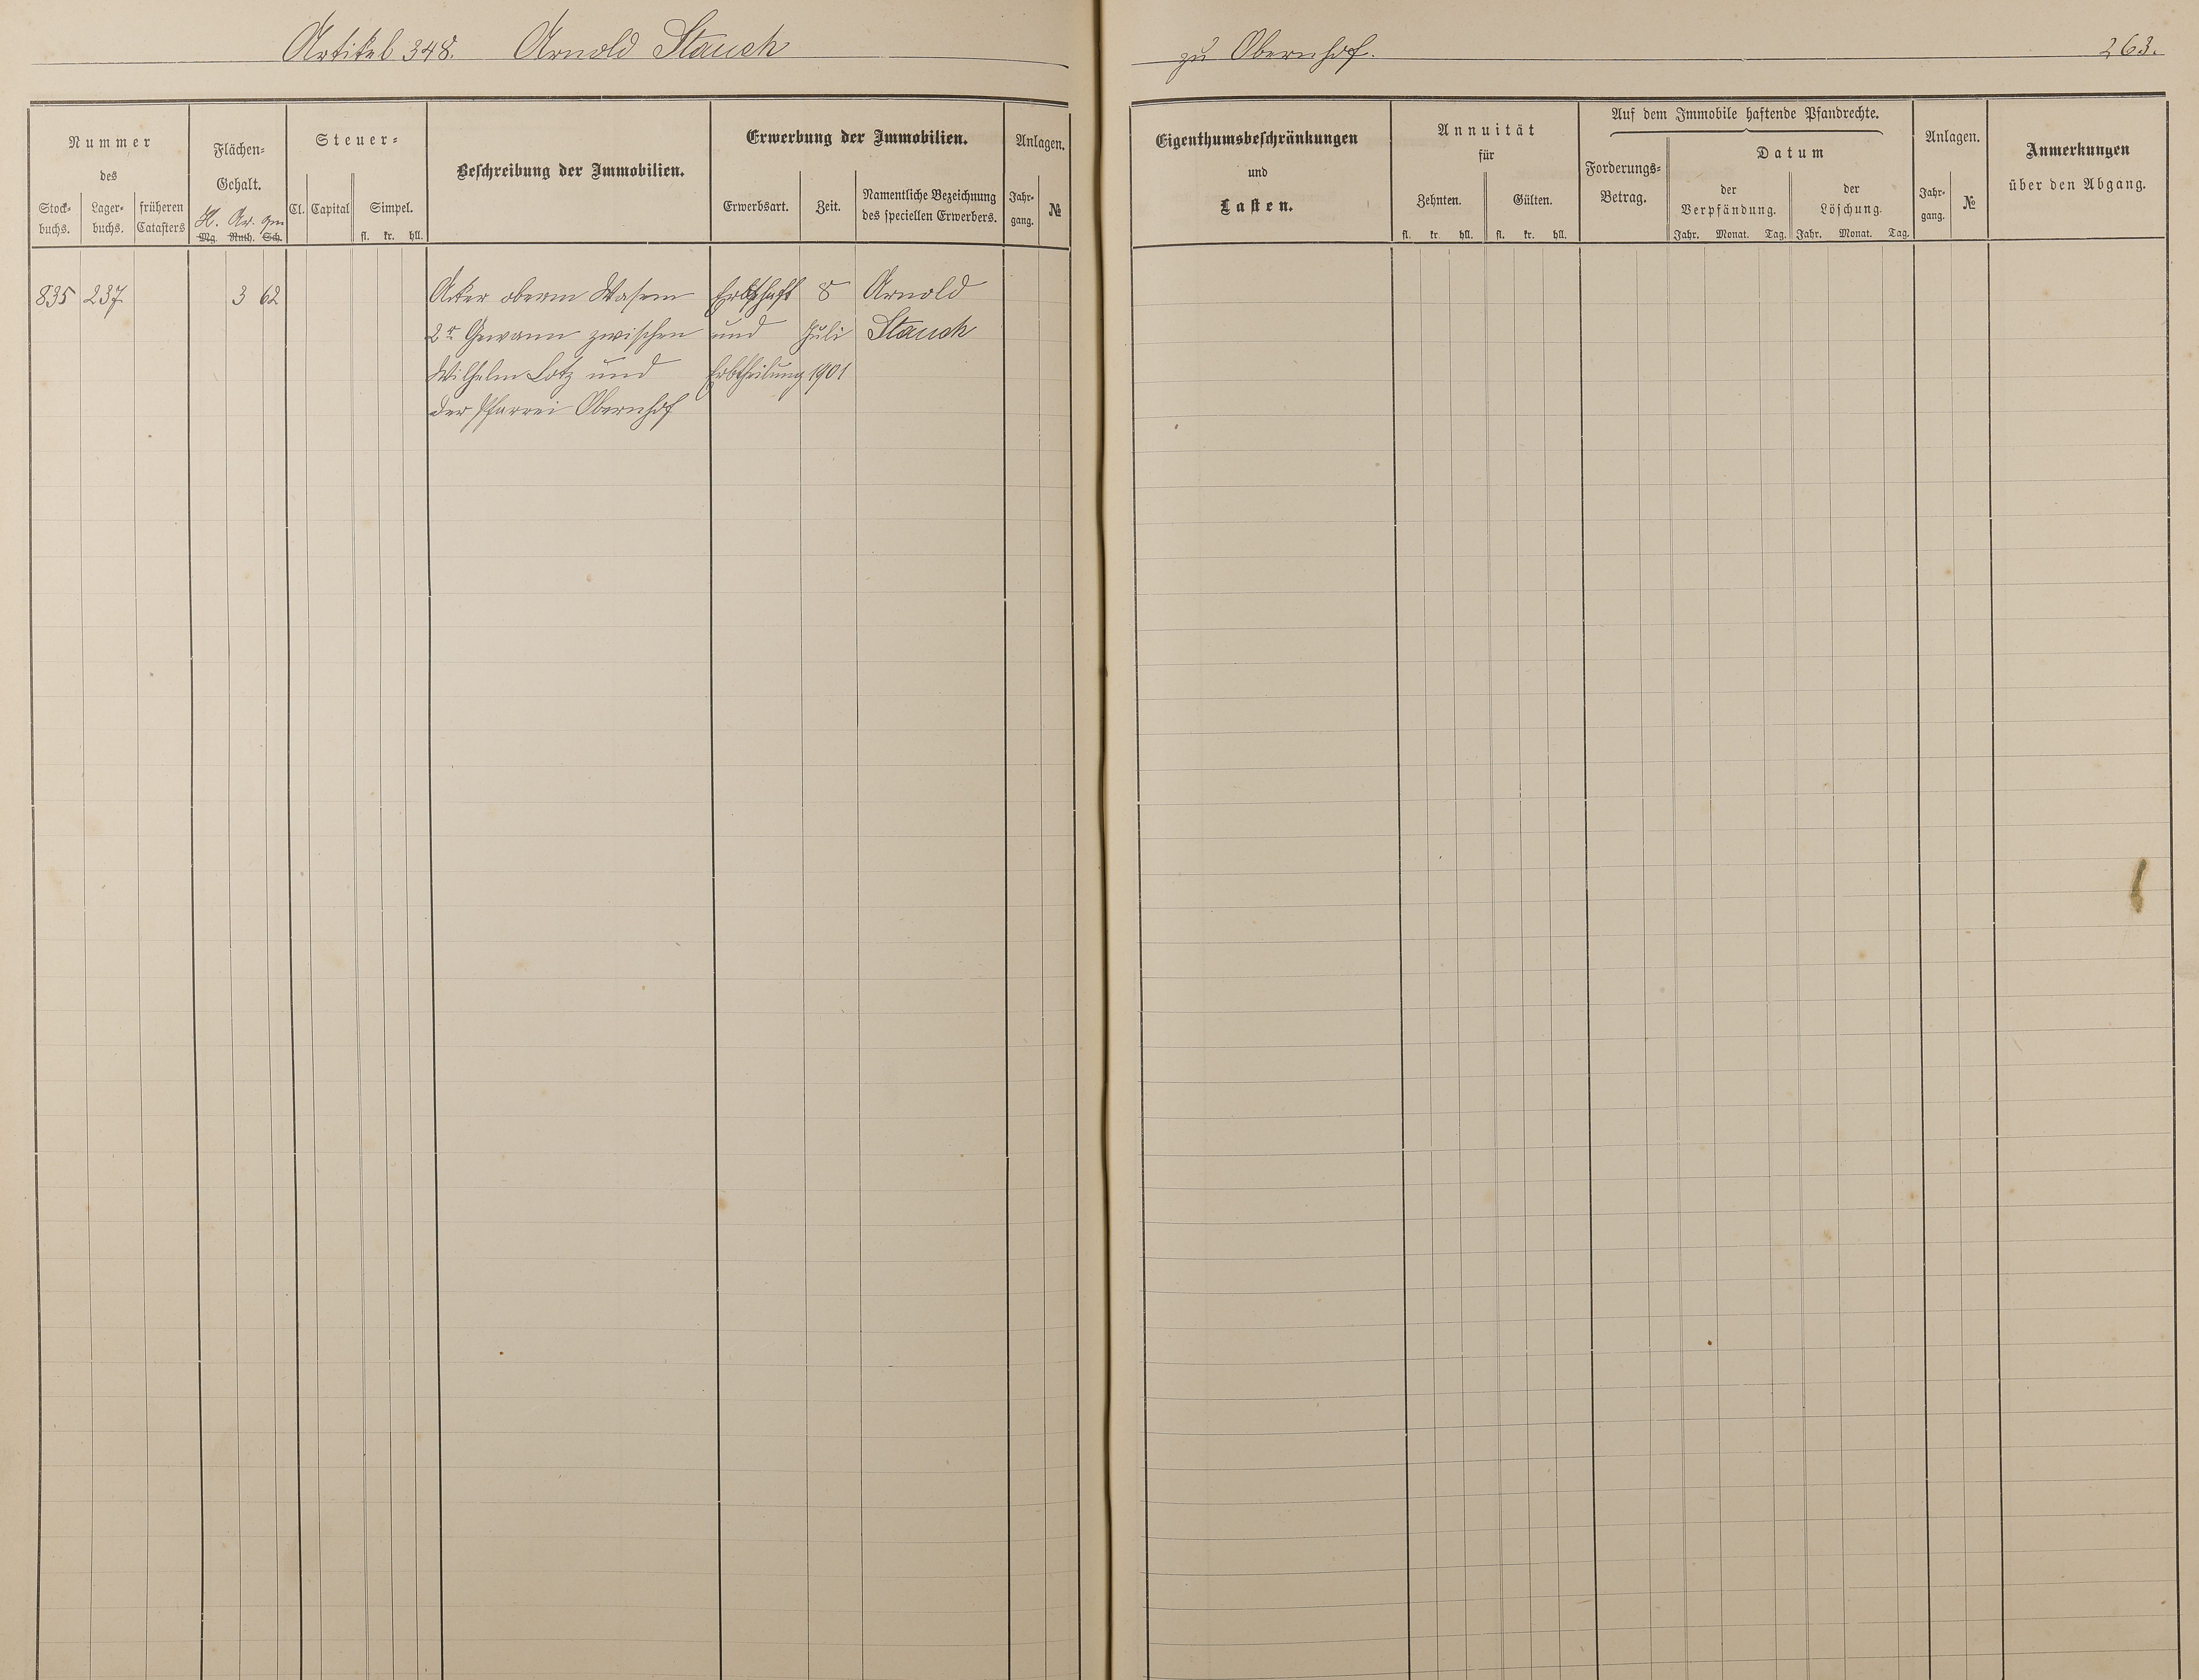 Artikel 348. Arnold Stauch
zu Obernhof. 263.
Nummer
des
Stock-
buchs.
Lager-
buchs.
früheren
Catasters
Flächen-
Gehalt.
H. Ar. qm
Mg. Ruth. Sch.
Steuer-
Cl. Capital Simpel.
fl. kr. hll.
Beschreibung der Immobilien.
Erwerbung der Immobilien.
Erwerbsart. Zeit.
Namentliche Bezeichnung
des speciellen Erwerbers.
Anlagen.
Jahr-
gang.
№
Eigenthumsbeschränkungen
und
Lasten.
Annuität
für
Zehnten. Gülten.
fl. kr. hll. fl. kr. hll.
Auf dem Immobile haftende Pfandrechte.
Forderungs-
Betrag.
Datum
der
Verpfändung.
der
Löschung.
Jahr. Monat. Tag. Jahr. Monat. Tag.
Anlagen.
Jahr-
gang.
№
Anmerkungen
über den Abgang.
835 237 3 62 Acker oberm Wasem Erbschaft 8 Arnold
2r Gewann zwischen und Juli Stauch
Wilhelm Lotz und Erbtheilung 1901
der Pfarrei Obernhof